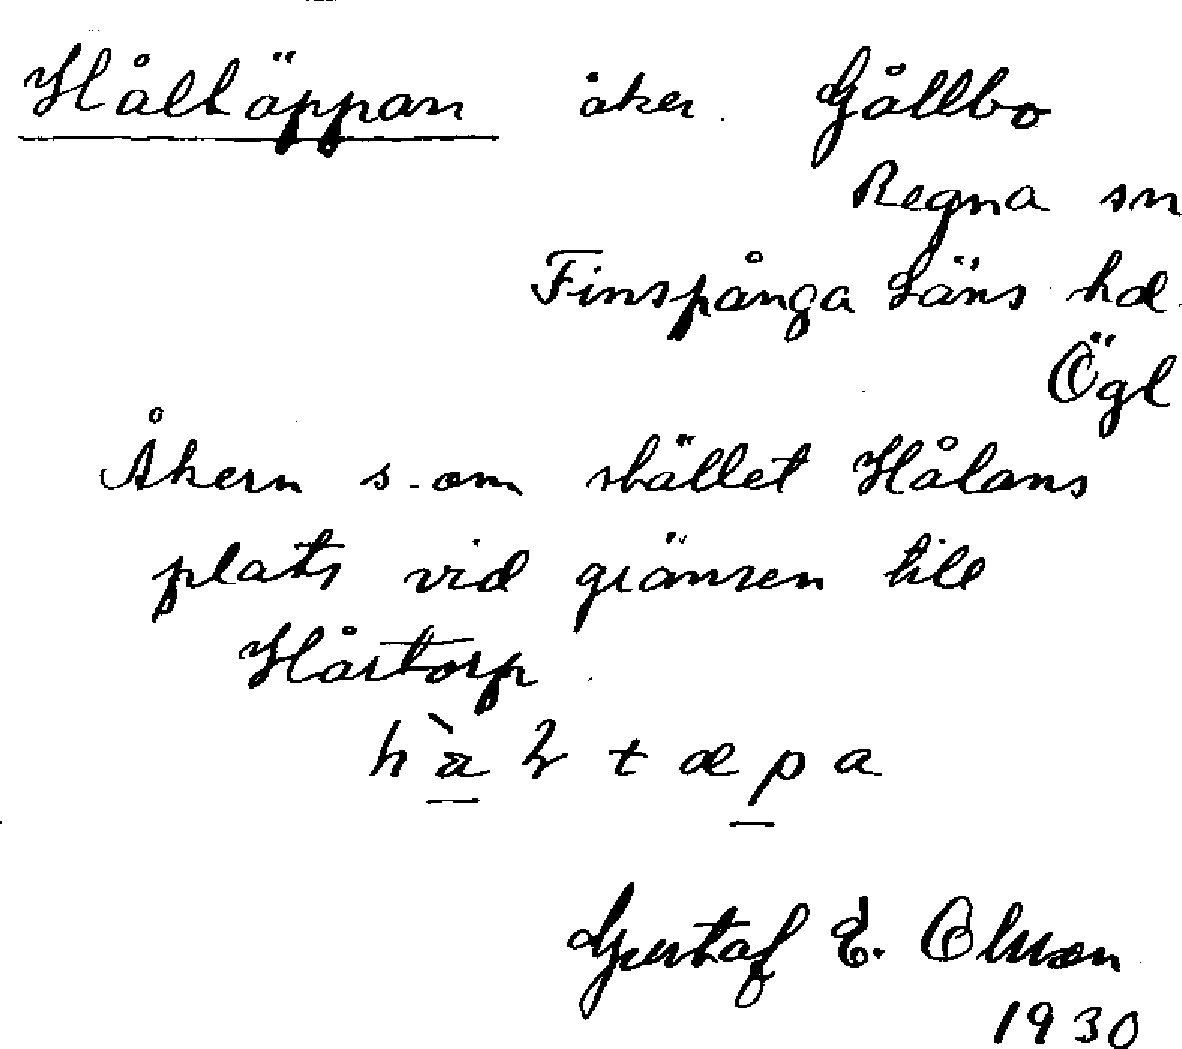 Håltäppan åker. Gållbo
Regna sn
Finspånga Läns hd.
Ögl
Åkern s. om stället Hålans
plats vid gränsen till
Hårtorp.
Gustaf E. Olsson
1930